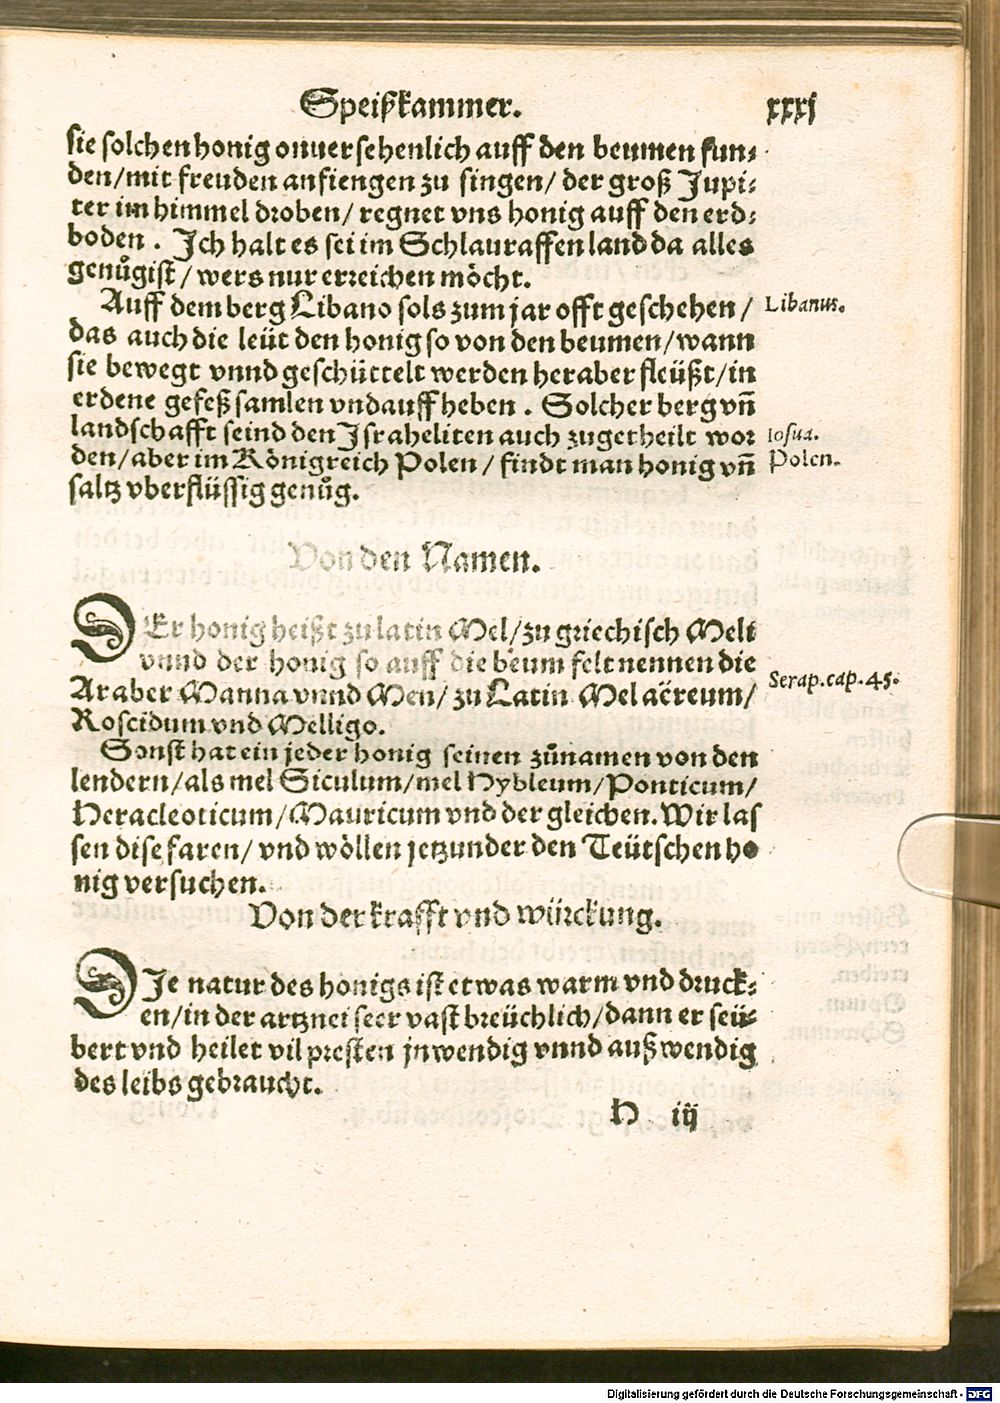 Speißkammer. xxxj
sie solchen honig onuersehenlich auff den beumen fun⸗
den/mit freuden anfiengen zu singen/ der groß Jupi⸗
ter im himmel droben/ regnet vns honig auff den erd⸗
boden . Ich halt es sei im Schlauraffenland da alles
genůg ist/ wers nur erreichen möcht.
Auff dem berg Libano sols zum jar offt geschehen/ Libanus.
das auch die leüt den honig so von den beumen/wann
sie bewegt vnnd geschüttelt werden heraber fleüßt/in
erdene gefeß samlen vnd auff heben . Solcher berg vñ
landschafft seind den Israheliten auch zugetheilt wor Iosua.
den/aber im Königreich Polen/ findt man honig vñ Polen.
saltz vberflüssig genůg.
Von den Namen.
DEr honig heißt zu latin Mel/zu griechisch Meli
vnnd der honig so auff die beum felt nennen die
Araber Manna vnnd Men/ zu Latin Mel aëreum/ Serap.cap.45.
Roscidum vnd Melligo.
Sonst hat ein jeder honig seinen zůnamen von den
lendern/als mel Siculum/mel Hybleum/Ponticum/
Heracleoticum/Mauricum vnd der gleichen. Wir las
sen dise faren/ vnd wöllen jetzunder den Teütschen ho
nig versuchen.
Von der krafft vnd würckung.
DIe natur des honigs ist etwas warm vnd druck⸗
en/in der artznei seer vast breüchlich/dann er seü⸗
bert vnd heilet vil presten jnwendig vnnd außwendig
des leibs gebraucht.
H iij
Digitalisierung gefördert durch die Deutsche Forschungsgemeinschaft - DFG